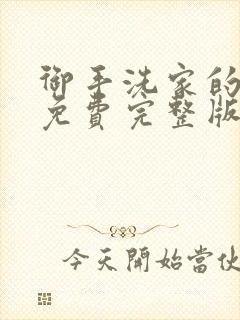 御手洗家的
免費完整版
今天開始當伙